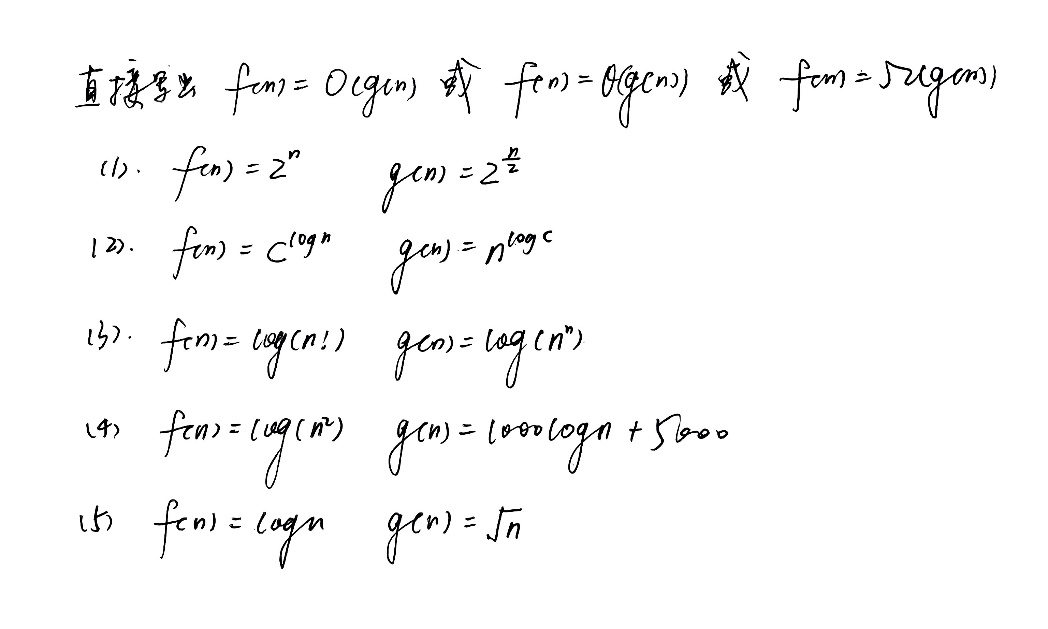 直接写出 f(n) = O(g(n) 或 f(n) = θ(g(n)) 或 f(n) = Ω(g(n))
(1). f(n) = 2^n g(n) = 2^{n/2}
(2). f(n) = c^{log n} g(n) = n^{log c}
(3). f(n) = log(n!) g(n) = log(n^n)
(4) f(n) = log(n^2) g(n) = 1000logn + 5000
(5) f(n) = logn g(n) = √n